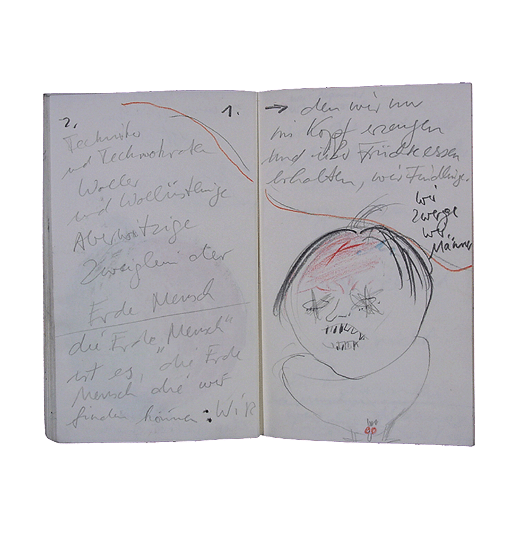 2.
Techniker
und Technokraten
Woller
und Wollüstlinge
Aberwitzige
Zwerglein der
Erde Mensch
die Erde Mensch"
ist es, "die Erde
Mensch die wir
finden können: WIR
1. → den wir nur
im Kopf erzeugen
und ihn
erhalten, wir
wir
Zwerge
wir
Männer